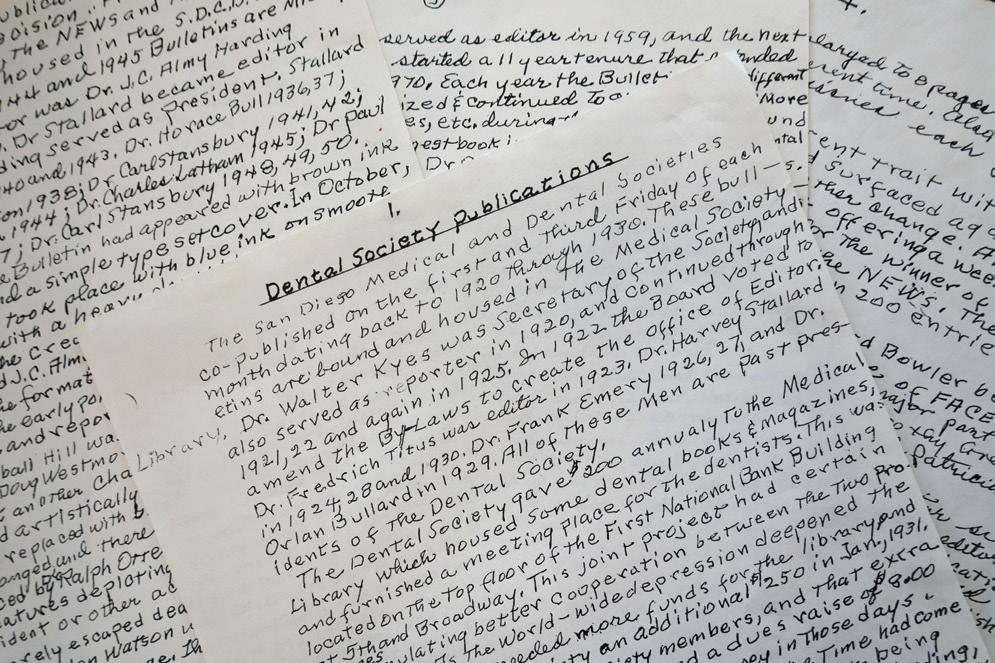 Dental Society Publications
1.
The San Diego Medical and Dental Societies
co-published on the first and third Friday of each
month dating back to 1920 through 1930. These bull-
etins are bound and housed in the Medical Society
Library. Dr. Walter Kyes was Secretary of the Society and
also served as reporter in 1920, and continued through
1921, 22 and again in 1925. In 1922 the Board voted to
amend the By-Laws to create the office of Editor.
Dr. Fredrich Titus was editor in 1923. Dr. Harvey Stallard
in 1924, 28 and 1930. Dr. Frank Emery 1926, 27, and Dr.
Orlan Bullard in 1929. All of These Men are past pres-
idents of The Dental Society.
The Dental Society gave $200 annualy To the Medical
Library which housed some dental books & magazines,
and furnished a meeting place for the dentists. This wa
located on the top floor of the First National Bank Building
at 5th and Broadway. This joint project had certain
ulating better cooperation between The Two Pro-
s The World-wide depression deepened the
needed more funds for the library and
ty an additional $250 in Jan, 1931.
iety members, and that extra
d a dues raise of $8.00
ey in Those days.
Time had come
being
The NEWS and
housed in the S.D.C.D.
44 and 1945 Bulletins are
or was Dr. J.C. Almy Harding
Dr Stallard became editor in
ding served as President. Stallard
40 and 1943. Dr. Horace Bull 1936, 37;
on 1938; Dr. Carl Stansbury 1941, 42;
1944; Dr. Charles Latham 1945; Dr Paul
7; Dr. Carl Stansbury 1948, 49, 50.
e Bulletin had appeared with brown ink
d a simple type set cover. In October,
took place with blue ink on smooth
with a heavy
the cre
d J.C. Alm
e format
e early po
and repor
ball Hill wa
Doug Westmo
t another cha
d artistically
replaced with
anged and there
ced by Ralph Orre
atures depicting
ident or other ac
rely escaped dea
on Watson w
served as editor in 1959, and the next
started a 11 year tenure that ended
970. Each year the Bullet
different
ized & continued To
More
es, etc. during
und
est book i
ntal
Dr
larged to 8 pages
erent time. Also
issues each
ent trait wit
d surfaced aga
ther change. A
offering a wee
or the winner of
the NEWS. The
n 200 entrie
d Bowler be
s of FACE
major part
Patricia